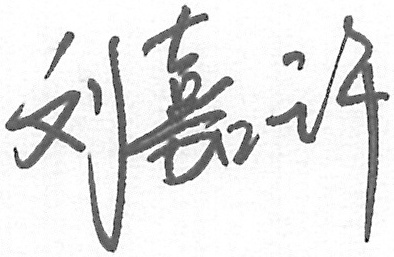 刘嘉许